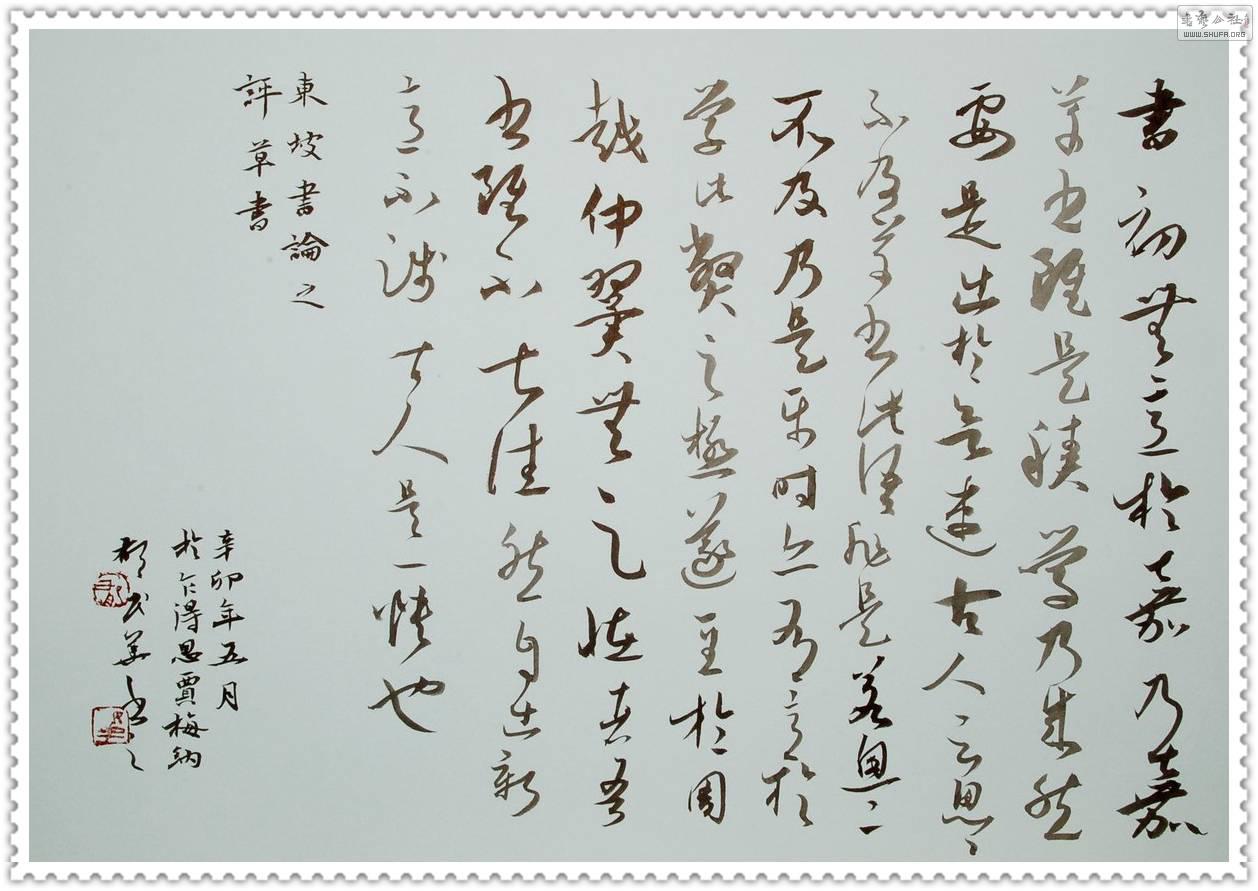 書初無意於嘉乃嘉
草書雖是積學乃成然
要是出於欲速古人云怱〻
不及草書此語非是若怱〻
不及乃是平時亦有意於
学此弊之極遂至於周
越仲翼無足怪者吾
書雖不甚佳然自出新
意不踐古人是一快也
東坡書論之
評草書
辛卯年五月
於乍得恩賈梅納
書藝公社
WWW.SHUFA.ORG